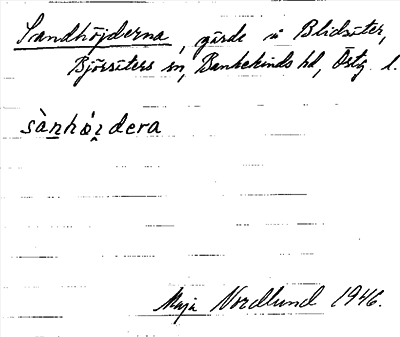 Sandhöjderna, gärde i Blidsäter,
Björsäters sn, Bankekinds hd, Östg. l.
sànhö̀ɪdera
Maja Nordlund 1946.